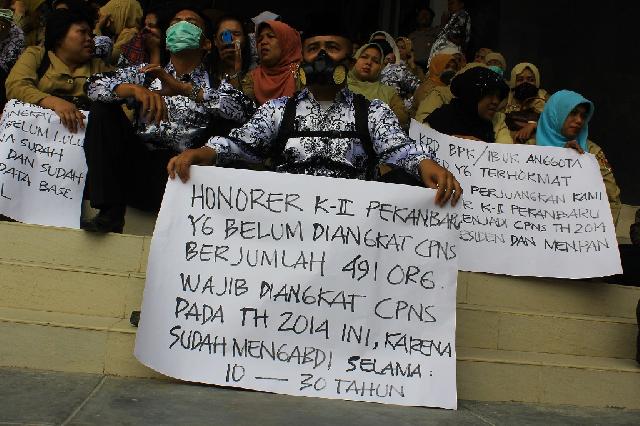 BELUM L.U.L
A SUDAH
DAN SUDAH
DATA BASE.
HONORER K-II PEKANBARU
YG BELUM DIANGKAT CPNS
BERJUMLAH 491 ORG.
WAJIB DIANGKAT CPNS
PADA TH 2014 INI, KARENA
SUDAH MENGABDI SELAMA:
10 — 30 TAHUN
BPK/IBUK ANGGOTA
YG TERHORMAT
PERJUANGKAN KAMI
R K-II PEKANBARU
ENJADI CPNS TH 2014
SIDEN DAN MENPAN